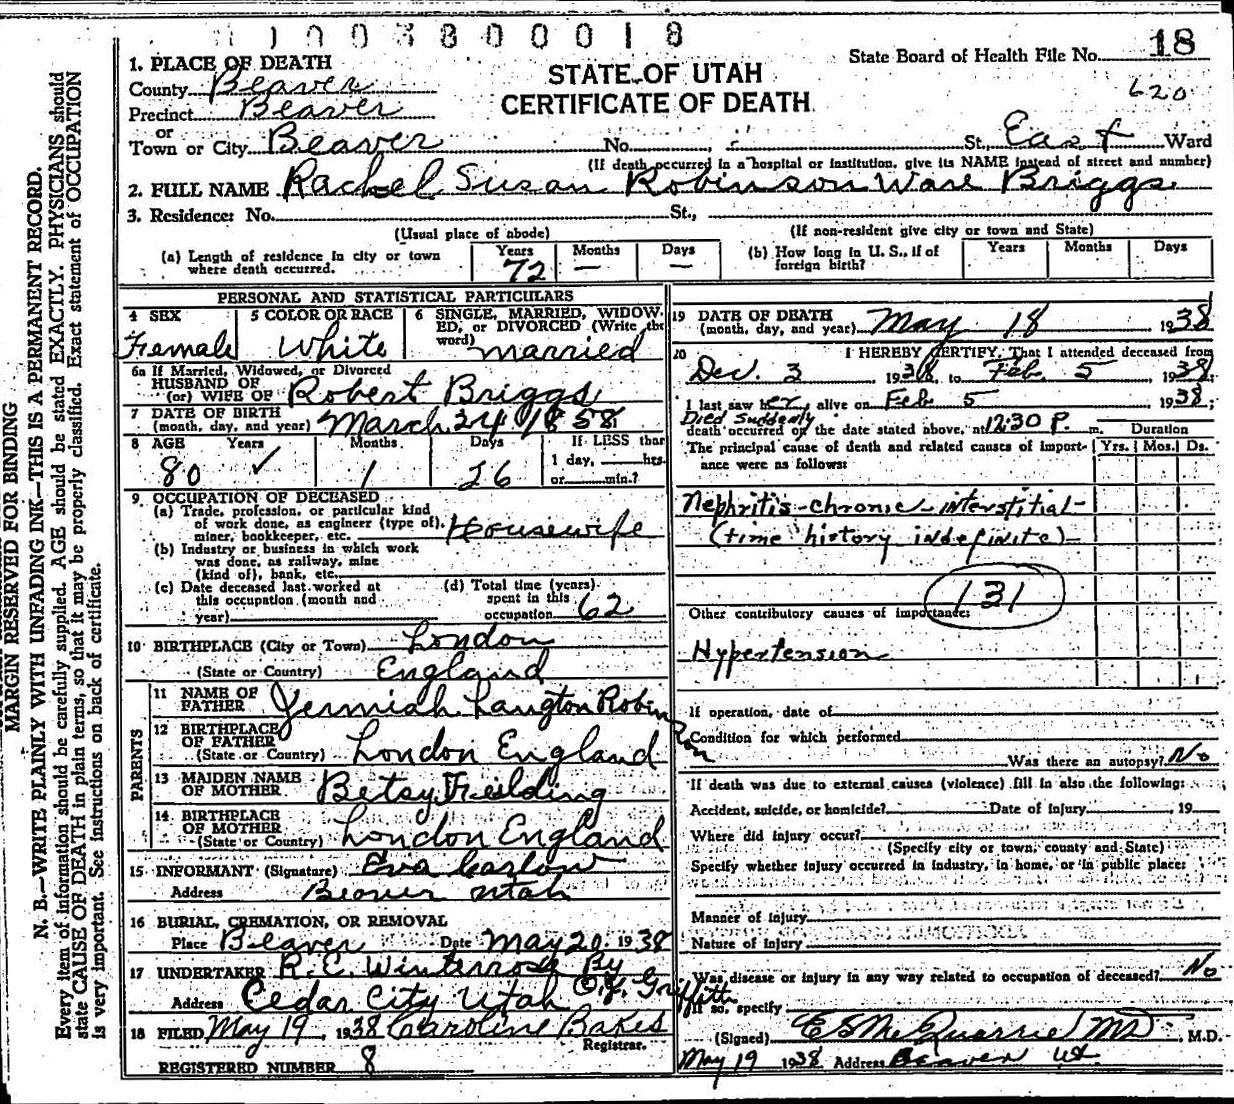 1 1 0 0 3 8 0 0 0 1 8
State Board of Health File No. 18
620
STATE OF UTAH
CERTIFICATE OF DEATH
1. PLACE OF DEATH
County Beaver
Precinct Beaver
or
Town or City Beaver No. St., East Ward
(If death occurred in a hospital or institution, give its NAME instead of street and number)
2. FULL NAME Rachel Susan Robinson Ware Briggs
3. Residence: No. St.,
(Usual place of abode) (If non-resident give city or town and State)
(a) Length of residence in city or town where death occurred. Years 72 Months — Days —
(b) How long in U. S., if of foreign birth? Years Months Days
PERSONAL AND STATISTICAL PARTICULARS
4 SEX Female
5 COLOR OR RACE White
6 SINGLE, MARRIED, WIDOWED, or DIVORCED (Write the word) married
6a If Married, Widowed, or Divorced
HUSBAND OF
(or) WIFE OF Robert Briggs
7 DATE OF BIRTH
(month, day, and year) March 24 1858
8 AGE Years 80 ✓ Months 1 Days 26 If LESS than
1 day, hrs.
or min.?
9. OCCUPATION OF DECEASED
(a) Trade, profession, or particular kind
of work done, as engineer (type of),
miner, bookkeeper, etc. Housewife
(b) Industry or business in which work
was done, as railway, mine
(kind of), bank, etc.
(c) Date deceased last worked at
this occupation (month and
year)
(d) Total time (years)
spent in this
occupation 62
10 BIRTHPLACE (City or Town) London
(State or Country) England
PARENTS
11 NAME OF FATHER Jermiah Langton Robinson
12 BIRTHPLACE OF FATHER
(State or Country) London England
13 MAIDEN NAME OF MOTHER Betsy Feilding
14 BIRTHPLACE OF MOTHER
(State or Country) London England
15 INFORMANT (Signature) Eva Carlow
Address Beaver Utah
16 BURIAL, CREMATION, OR REMOVAL
Place Beaver Date May 20 1938
17 UNDERTAKER R.C. Winterrose By
O.J. Griffiths
Address Cedar City Utah
18 FILED May 19, 1938 Caroline Bakes
Registrar.
REGISTERED NUMBER 8
19 DATE OF DEATH
(month, day, and year) May 18 1938
20 I HEREBY CERTIFY, That I attended deceased from
Dec. 3 1938, to Feb. 5 1938;
I last saw her alive on Feb 5 1938;
Died Suddenly
death occurred on the date stated above, at 12:30 P. m. Duration
The principal cause of death and related causes of importance were as follows: Yrs. Mos. Ds.
Nephritis-chronic-interstitial-
(time history indefinite)-
131
Other contributory causes of importance:
Hypertension
If operation, date of
Condition for which performed
Was there an autopsy? No
If death was due to external causes (violence) fill in also the following:
Accident, suicide, or homicide? Date of injury , 19
Where did injury occur?
(Specify city or town, county and State)
Specify whether injury occurred in industry, in home, or in public place:
Manner of injury
Nature of injury
Was disease or injury in any way related to occupation of deceased? No
If so, specify
(Signed) E S McQuarrie MD, M.D.
May 19 1938 Address Beaver Ut.
MARGIN RESERVED FOR BINDING
N. B.—WRITE PLAINLY WITH UNFADING INK—THIS IS A PERMANENT RECORD.
Every item of information should be carefully supplied. AGE should be stated EXACTLY. PHYSICIANS should
state CAUSE OF DEATH in plain terms, so that it may be properly classified. Exact statement of OCCUPATION
is very important. See instructions on back of certificate.